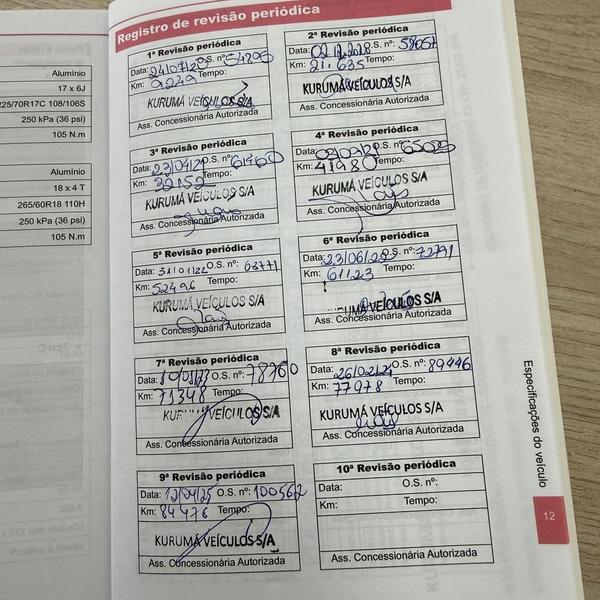 Registro de revisão periódica
1ª Revisão periódica
Data: 24/07/20 O.S. nº: 54295
Km: 9.229 Tempo:
KURUMÁ VEÍCULOS S/A
Ass. Concessionária Autorizada
2ª Revisão periódica
Data: O.S. nº: 58657
Km: 21.635 Tempo:
KURUMÁ VEÍCULOS S/A
Ass. Concessionária Autorizada
3ª Revisão periódica
Data: 23/04/21 O.S. nº: 61460
Km: 32152 Tempo:
KURUMÁ VEÍCULOS S/A
Ass. Concessionária Autorizada
4ª Revisão periódica
Data: O.S. nº: 65025
Km: 41980 Tempo:
KURUMÁ VEÍCULOS S/A
Ass. Concessionária Autorizada
5ª Revisão periódica
Data: 31/01/22 O.S. nº: 63771
Km: 52496 Tempo:
KURUMÁ VEÍCULOS S/A
Ass. Concessionária Autorizada
6ª Revisão periódica
Data: 23/06/22 O.S. nº: 72771
Km: 61123 Tempo:
KURUMÁ VEÍCULOS S/A
Ass. Concessionária Autorizada
7ª Revisão periódica
Data: O.S. nº: 78760
Km: 71348 Tempo:
KURUMÁ VEÍCULOS S/A
Ass. Concessionária Autorizada
8ª Revisão periódica
Data: 26/02/24 O.S. nº: 89446
Km: 77978 Tempo:
KURUMÁ VEÍCULOS S/A
Ass. Concessionária Autorizada
9ª Revisão periódica
Data: 12/04/25 O.S. nº: 100562
Km: 84476 Tempo:
KURUMÁ VEÍCULOS S/A
Ass. Concessionária Autorizada
10ª Revisão periódica
Data: O.S. nº:
Km: Tempo:
Ass. Concessionária Autorizada
Especificações do veículo
12
Alumínio
17 x 6J
225/70R17C 108/106S
250 kPa (36 psi)
105 N.m
Alumínio
18 x 4 T
265/60R18 110H
250 kPa (36 psi)
105 N.m